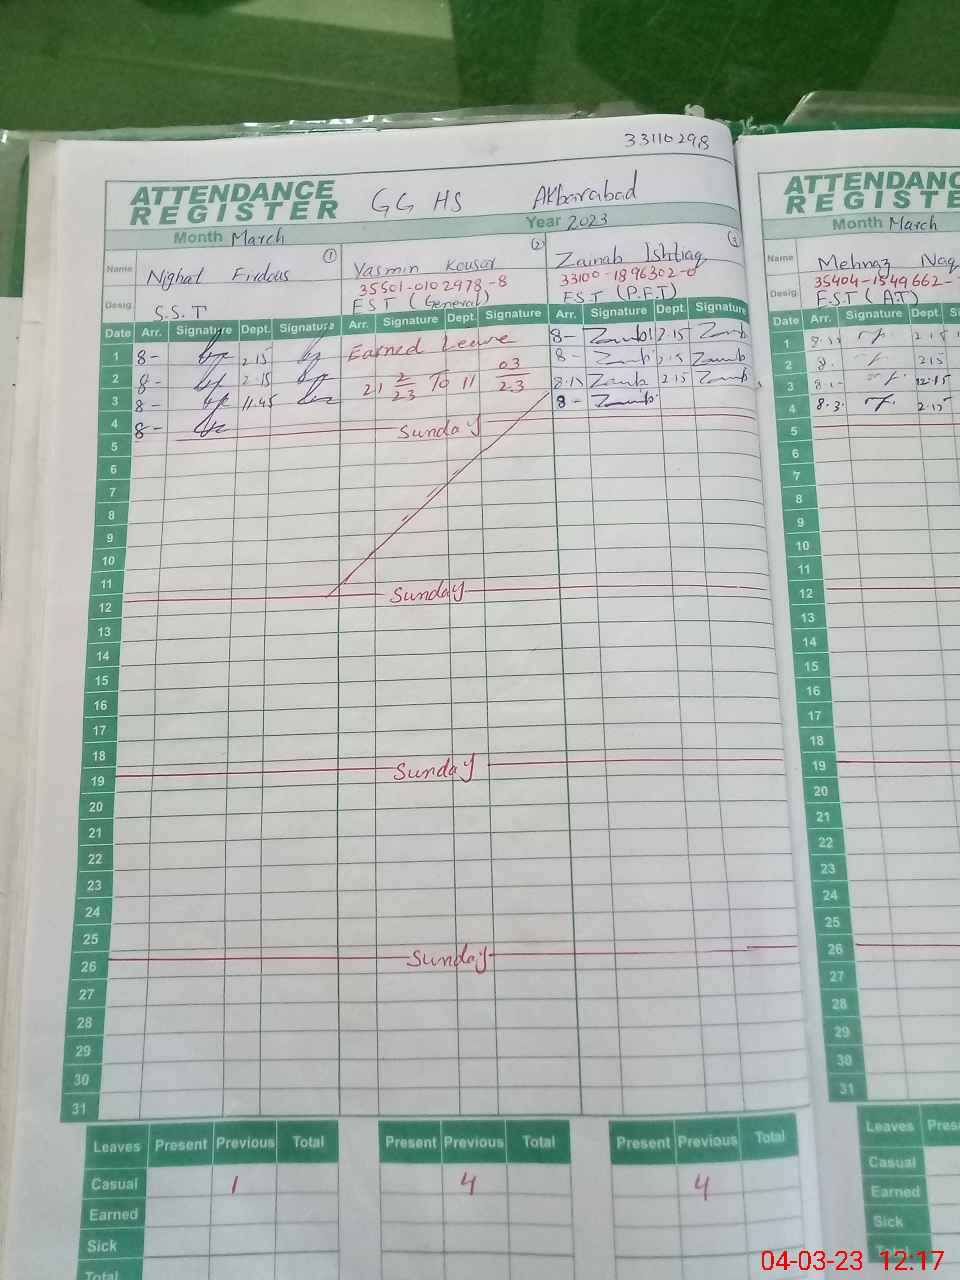 33110298
ATTENDANCE REGISTER GGHS Akbarabad
Month March Year 2023
① ② ③
Name Nighat Firdous Yasmin Kousar Zainab Ishtiaq
35501-0102978-8 33100-1896302-0
Desig. S.S.T EST (General) E.S.T (P.E.T)
Date Arr. Signature Dept. Signature Arr. Signature Dept. Signature Arr. Signature Dept. Signature
1 8- 2.15 Earned Leave 8- Zainab 2.15 Zainab
2 8- 2.15 21 2/23 To 11 03/23 8- Zainab 2.15 Zainab
3 8- 11.45 8.15 Zainab 2.15 Zainab
4 8- 8- Zainab
5 Sunday
6
7
8
9
10
11
12 Sunday
13
14
15
16
17
18
19 Sunday
20
21
22
23
24
25
26 Sunday
27
28
29
30
31
Leaves Present Previous Total Present Previous Total Present Previous Total
Casual 1 4 4
Earned
Sick
Total
ATTENDANC
REGISTE
Month March
Name Mehnaz Naq
35404-1549662-
Desig. E.S.T (A.T)
Date Arr. Signature Dept. Si
1 2.15
2 8. 2.15
3 12.15
4 8.3. 2.15
5
6
7
8
9
10
11
12
13
14
15
16
17
18
19
20
21
22
23
24
25
26
27
28
29
30
31
Leaves Pres
Casual
Earned
Sick
Total
04-03-23 12:17